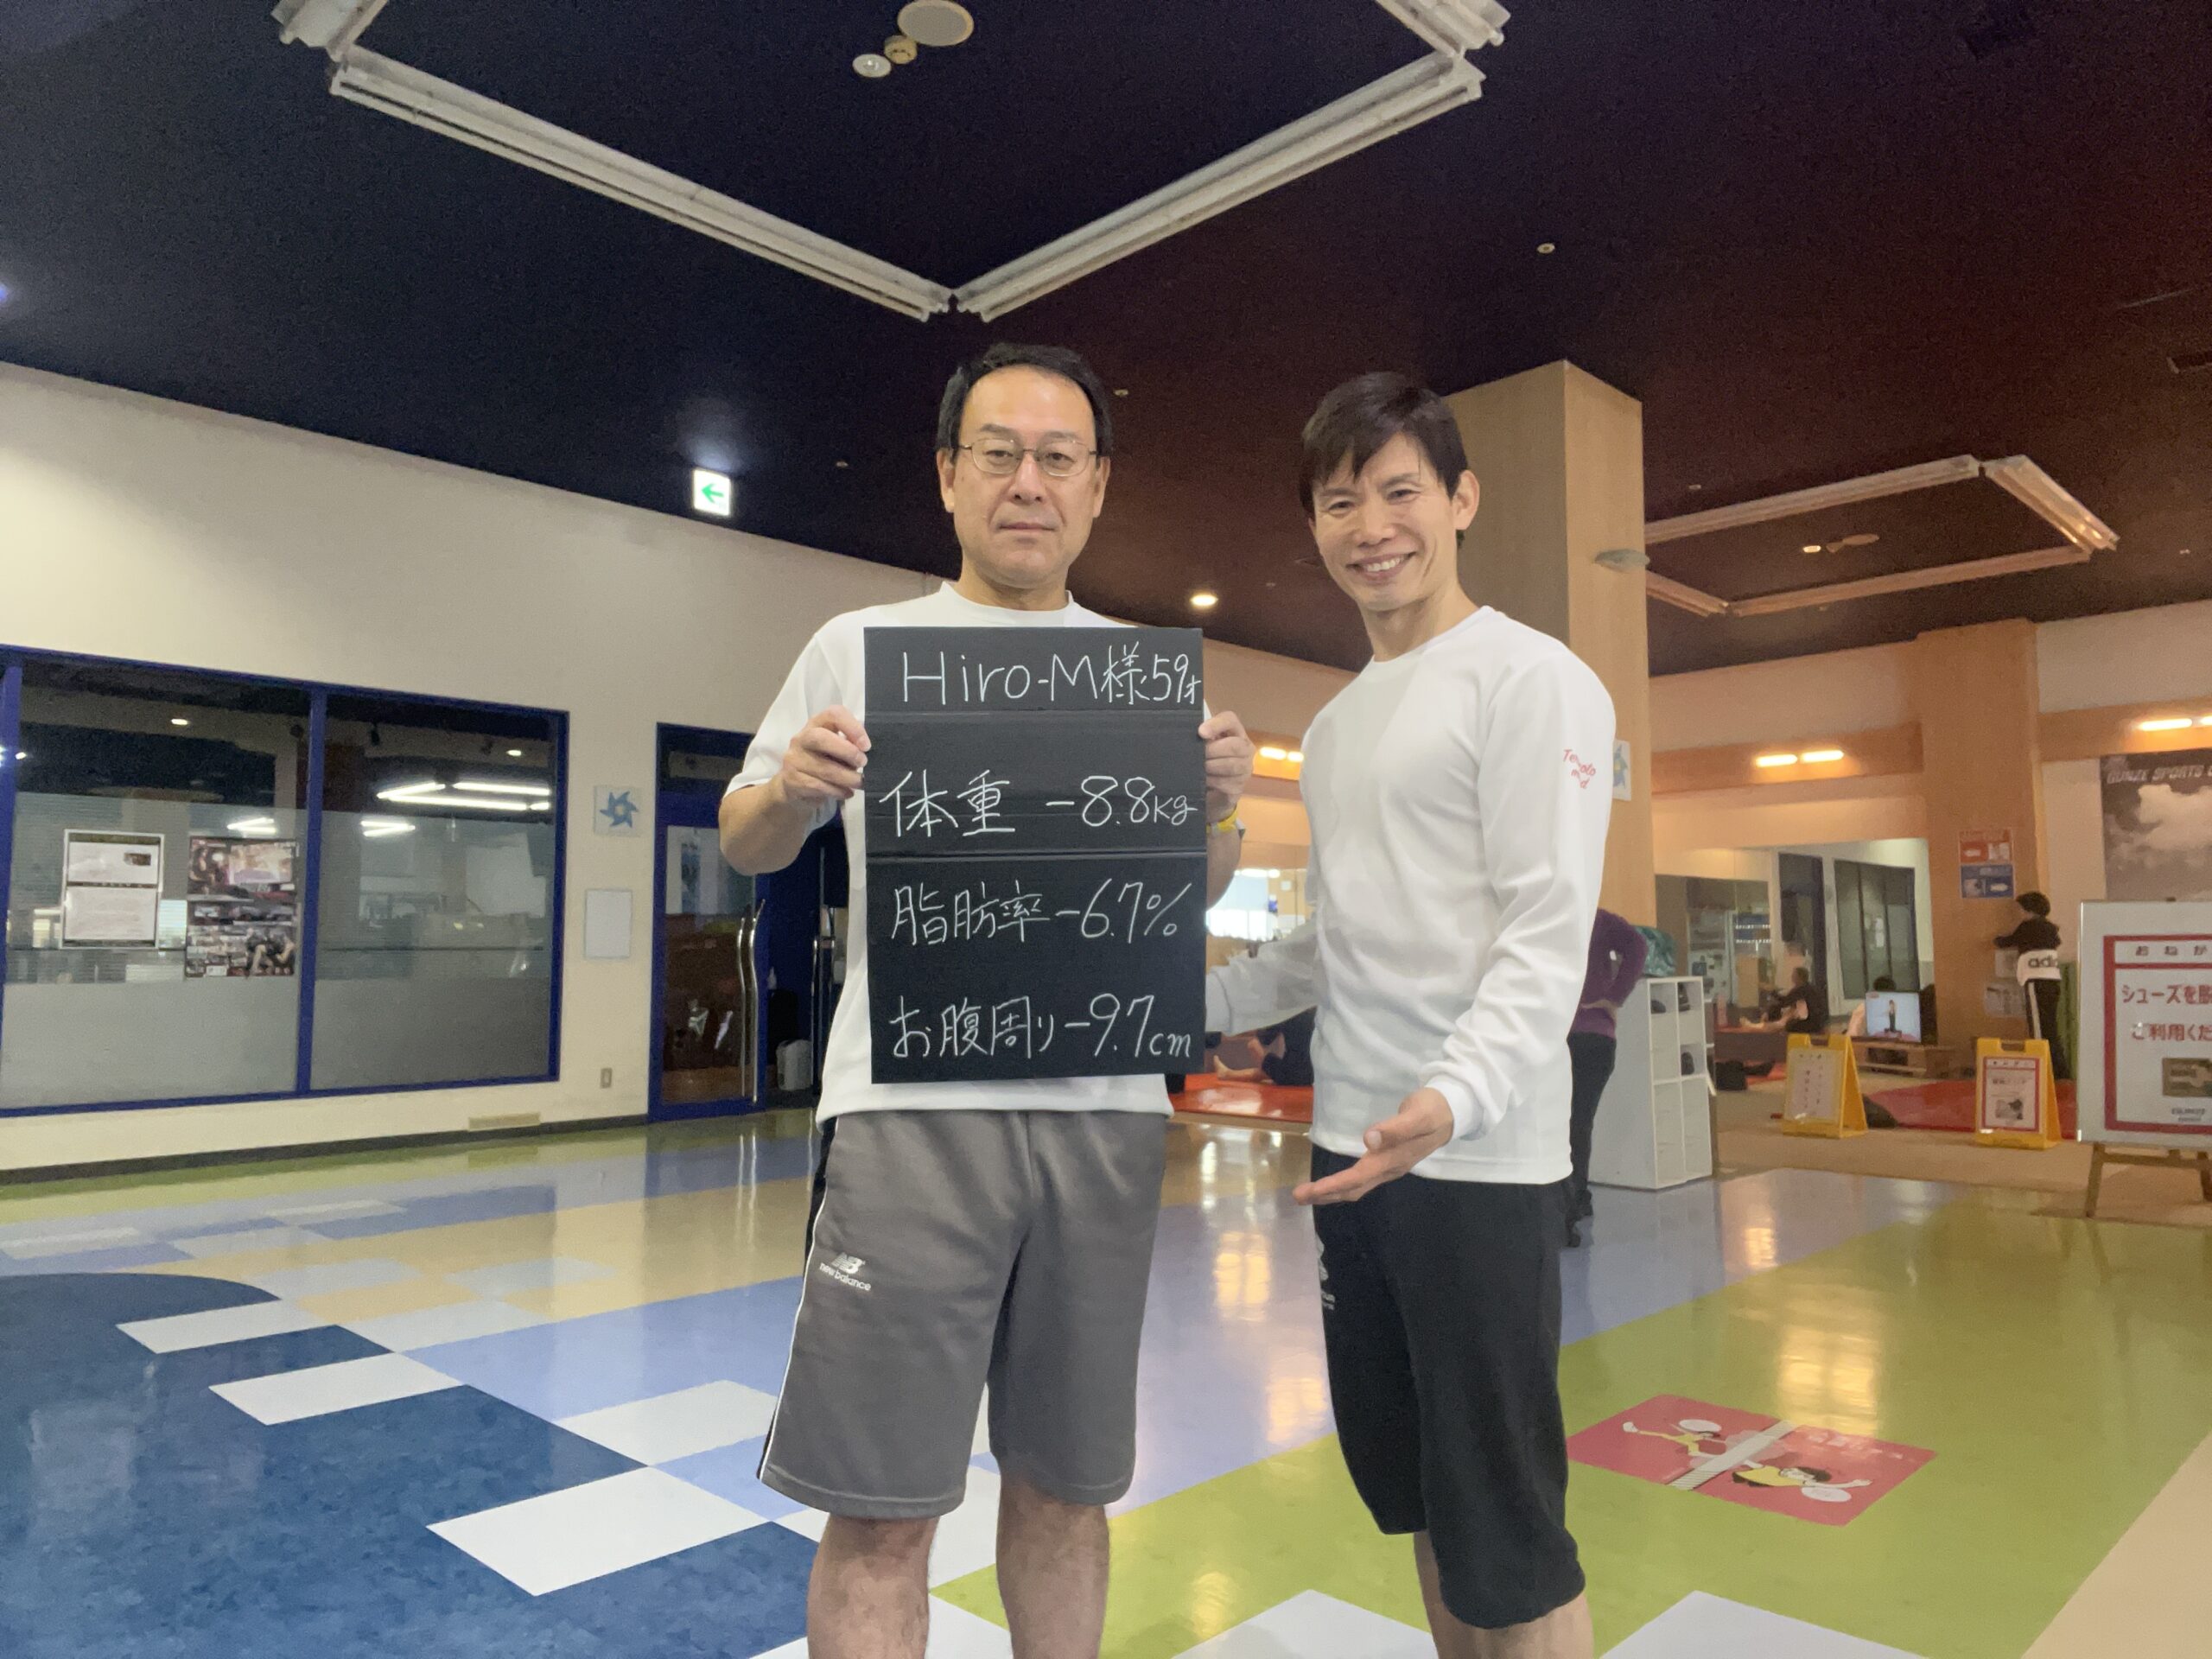 Hiro-M様59才
体重 -8.8kg
脂肪率-6.7%
お腹周り-9.7cm
new balance
GUNZE SPORTS
adidas
おねが
シューズを脱
ご利用くだ